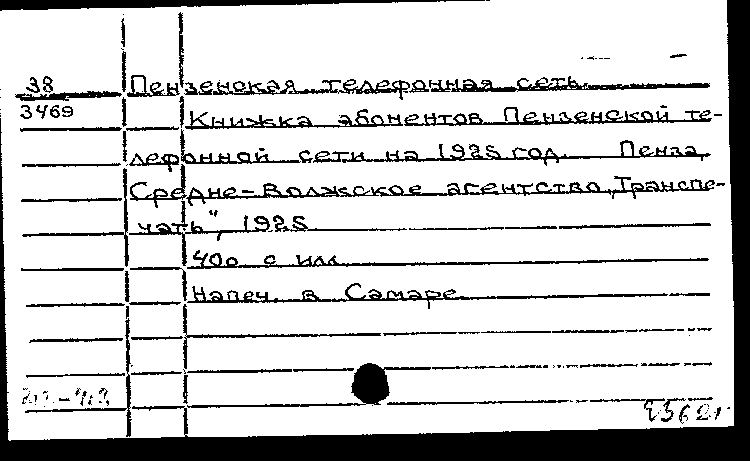 38 Пензенская телефонная сеть.
3469 Книжка абонентов Пензенской те-
лефонной сети на 1925 год. Пенза,
Средне-Волжское агентство „Транспе-
чать", 1925
400 с илл.
Напеч. в Самаре.